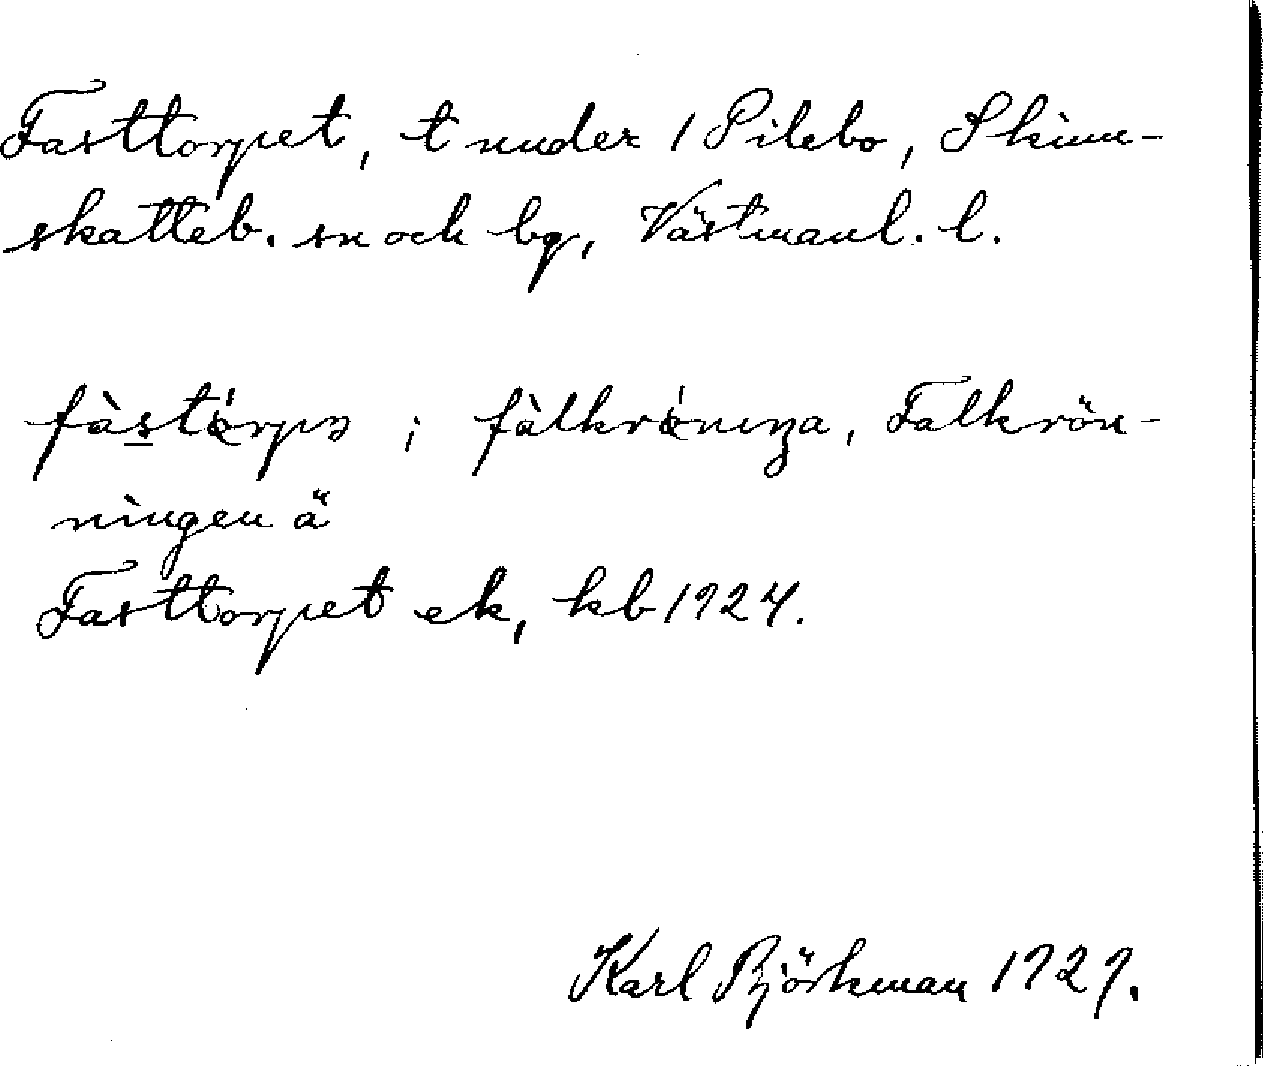 Fasttorpet, t under 1 Pilebo, Skinn-
skatteb. sn och bg, Västmanl. l.
fàstó̤rpə ; fàlkró̤nıŋa, Falkrön-
ningen ä
Fasttorpet ek, kb 1924.
Karl Björkman 1929.